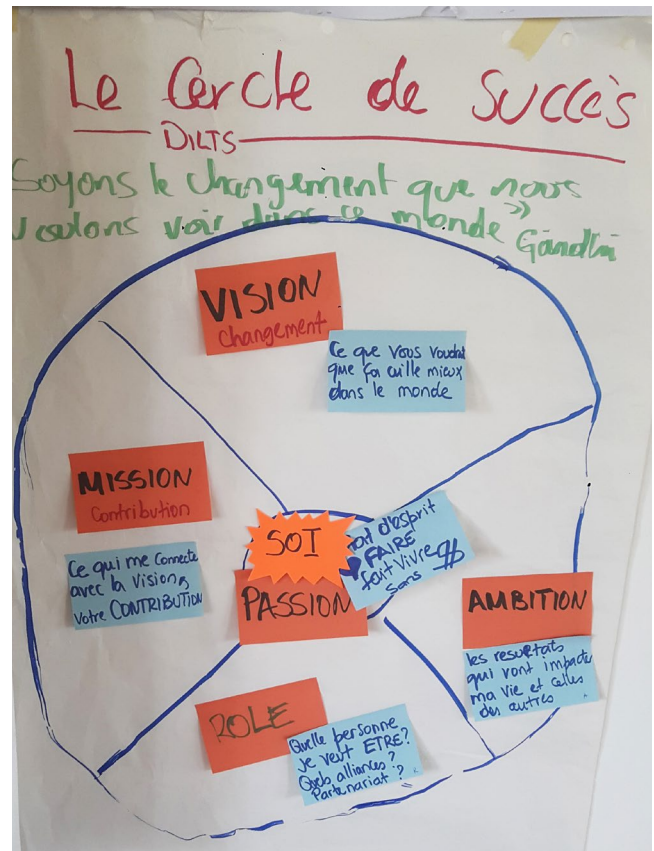 Le Cercle de Succès
DILTS
Soyons le changement que nous
voulons voir dans ce monde »
Gandhi
VISION
Changement
Ce que vous
que ça aille mieux
dans le monde
MISSION
Contribution
Ce qui me Connecte
avec la vision
Votre CONTRIBUTION
SOI
PASSION
d'esprit
FAIRE
fait vivre
sans
AMBITION
les resultats
qui vont impacter
ma vie et celles
des autres
ROLE
Quelle personne
je veut ETRE?
Quels alliances?
Partenariat?